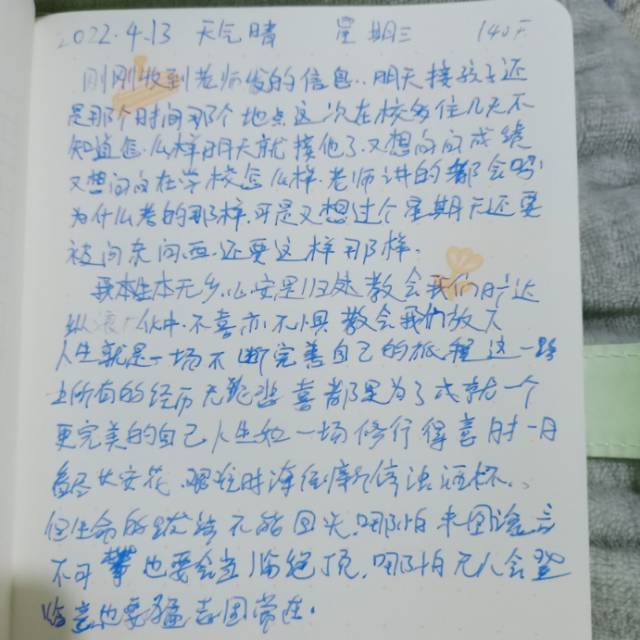 2022.4.13 天气晴 星期三 140天
刚刚收到老师发的信息,明天接孩子还
是那个时间那个地点这次在校多住几天不
知道怎么样明天就接他了又想问问成绩
又想问问在学校怎么样老师讲的都会吗
为什么考的那样,可是又想过个星期天还要
被问东问西,还要这样那样.
我本生本无乡,心安是归处教会我们
纵浪大化中,不喜亦不惧教会我们放下
人生就是一场不断完善自己的旅程这一路
上所有的经历无论悲喜都是为了成就一个
更完美的自己人生如一场修行得意时一日
看尽长安花,艰难时潦倒新停浊酒杯、
但生命的跋涉不能回头,哪怕
不可攀也要会当临绝顶,哪怕无人会登
临意也要猛志固常在.